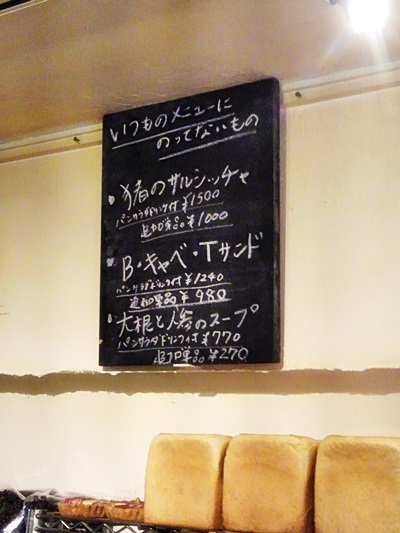 いつものメニューに
のってないもの
猪のサルシッチャ
パンサラダドリンク付 ¥1500
追加単品 ¥1000
B・キャベ・Tサンド
パンサラダドリンク付 ¥1240
追加単品 ¥980
大根と人参のスープ
パンサラダドリンク付 ¥770
追加単品 ¥270